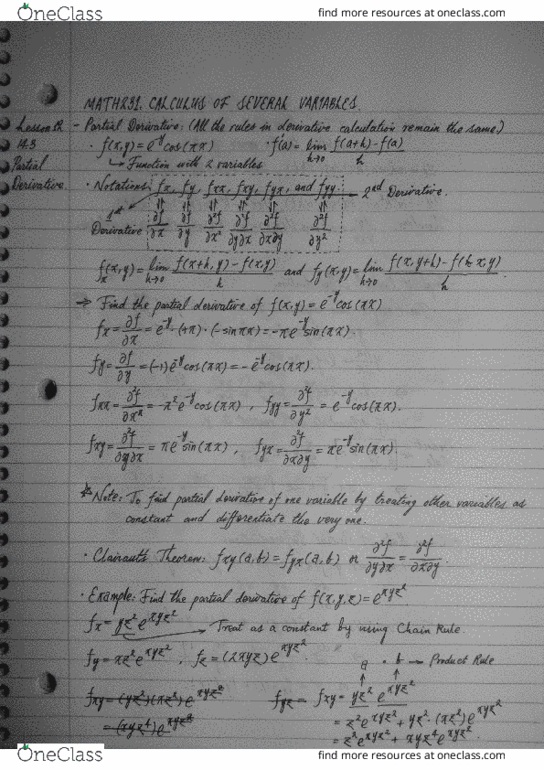 OneClass
find more resources at oneclass.com
MATH231. CALCULUS OF SEVERAL VARIABLES.
Lesson 12
14.3
Partial
Derivative.
- Partial Derivative: (All the rules in derivative calculation remain the same)
· f(x,y) = e^-y cos(πx) · f'(a) = lim h→0 f(a+h) - f(a) / h
↳ Function with 2 variables
· Notations: fx, fy, fxx, fxy, fyx, and fyy. → 2nd Derivative.
1st Derivative ∂f/∂x ∂f/∂y ∂²f/∂x² ∂²f/∂y∂x ∂²f/∂x∂y ∂²f/∂y²
fx(x,y) = lim h→0 f(x+h, y) - f(x,y) / h and fy(x,y) = lim h→0 f(x,y+h) - f(x,y) / h
⇒ Find the partial derivative of f(x,y) = e^-y cos(πx)
fx = ∂f/∂x = e^-y · (+π) · (-sinπx) = -πe^-y sin(πx).
fy = ∂f/∂y = (-1)e^-y cos(πx) = -e^-y cos(πx).
fxx = ∂²f/∂x² = -π²e^-y cos(πx), fyy = ∂²f/∂y² = e^-y cos(πx).
fxy = ∂²f/∂y∂x = πe^-y sin(πx), fyx = ∂²f/∂x∂y = πe^-y sin(πx).
* Note: To find partial derivative of one variable by treating other variables as
constant and differentiate the very one.
· Clairaut's Theorem: fxy(a,b) = fyx(a,b) or ∂²f/∂y∂x = ∂²f/∂x∂y.
· Example: Find the partial derivative of f(x,y,z) = e^xyz²
fx = yz² e^xyz² → Treat as a constant by using Chain Rule.
fy = xz² e^xyz², fz = (2xyz) e^xyz² a · b → Product Rule
fxy = (yz²)(xz²) e^xyz² fyx = fxy = yz² e^xyz²
= (xyz⁴) e^xyz² = z² e^xyz² + yz² · (xz²) e^xyz²
= z² e^xyz² + xyz⁴ e^xyz².
OneClass
find more resources at oneclass.com